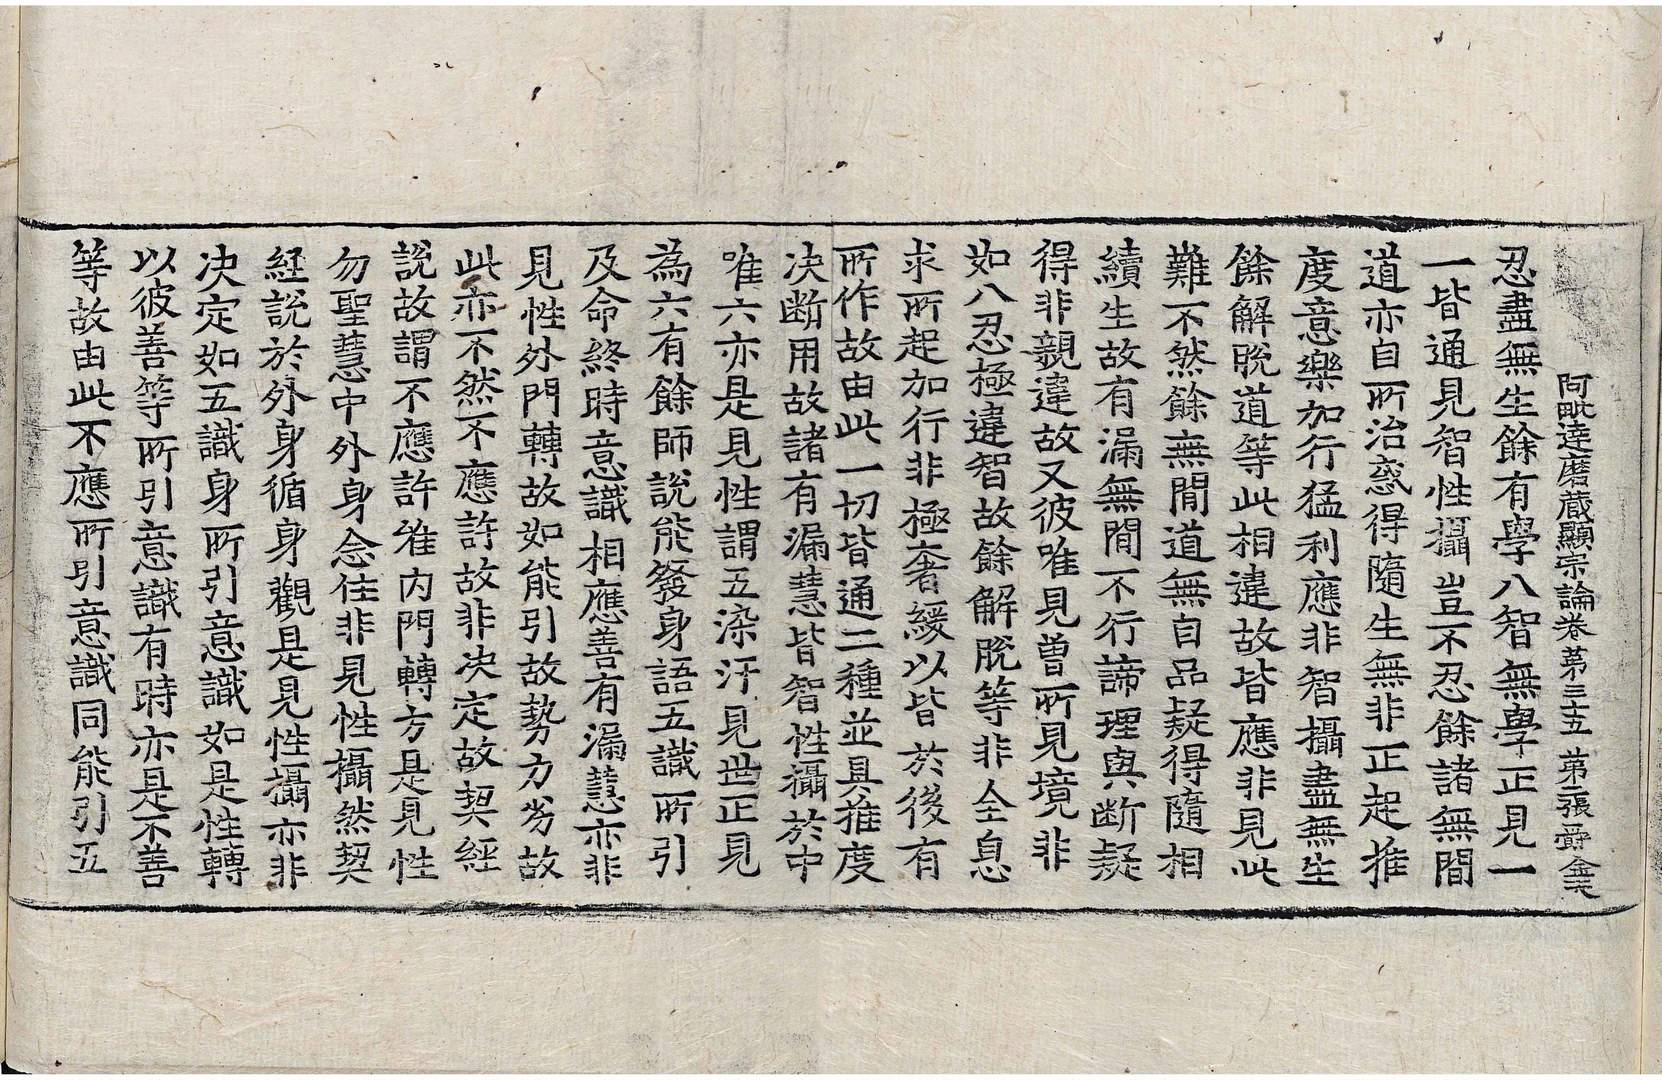 阿毗達磨藏顯宗論卷第三十五 第二張 爵
忍盡無生餘有學八智無學正見一
一皆通見智性攝豈不忍餘諸無間
道亦自所治惑得隨生無非正起推
度意樂加行猛利應非智攝盡無生
餘解脫道等此相違故皆應非見此
難不然餘無間道無自品疑得隨相
續生故有漏無間不行諦理與斷疑
得非親違故又彼唯見曾所見境非
如八忍極違智故餘解脫等非全息
求所起加行非極奢緩以皆於後有
所作故由此一切皆通二種並具推度
決斷用故諸有漏慧皆智性攝於中
唯六亦是見性謂五染汙見世正見
為六有餘師說能發身語五識所引
及命終時意識相應善有漏慧亦非
見性外門轉故如能引故勢力劣故
此亦不然不應許故非決定故契經
說故謂不應許唯內門轉方是見性
勿聖慧中外身念住非見性攝然契
經說於外身循身觀是見性攝亦非
決定如五識身所引意識如是性轉
以彼善等所引意識有時亦是不善
等故由此不應所引意識同能引五